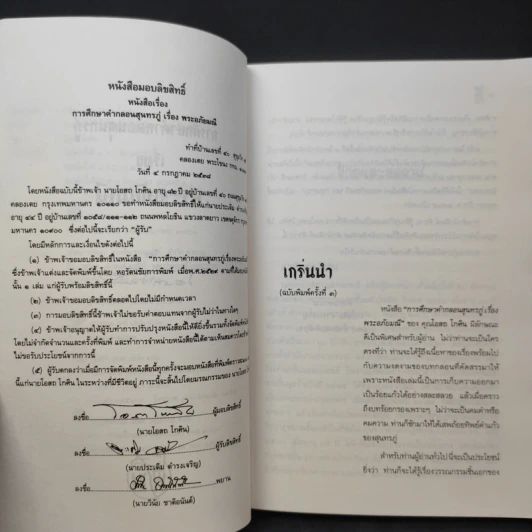 หนังสือมอบลิขสิทธิ์
หนังสือเรื่อง
การศึกษาคำกลอนสุนทรภู่ เรื่อง พระอภัยมณี
ทำที่บ้านเลขที่ ๔๐
คลองเตย พระโขนง กทม.
วันที่ ๔ กรกฎาคม ๒๕๓๘
โดยหนังสือฉบับนี้ข้าพเจ้า นายโอสถ โกศิน อายุ ๘๒ ปี อยู่บ้านเลขที่ ๔๐
คลองเตย กรุงเทพมหานคร ๑๐๑๑๐ ขอทำหนังสือมอบลิขสิทธิ์ให้แก่นายประเดิม
อายุ ๔๔ ปี อยู่บ้านเลขที่ ถนนพหลโยธิน แขวงลาดยาว เขตจตุจักร
มหานคร ๑๐๙๐๐ ซึ่งต่อไปนี้จะเรียกว่า "ผู้รับ"
โดยมีหลักการและเงื่อนไขดังต่อไปนี้
(๑) ข้าพเจ้าขอมอบลิขสิทธิ์ในหนังสือ "การศึกษาคำกลอนสุนทรภู่เรื่องพระอภัยมณี
ซึ่งข้าพเจ้าแต่งและจัดพิมพ์ขึ้นโดย หอรัตนชัยการพิมพ์ เมื่อพ.ศ.๒๕๒๔
นั้น ๑ เล่ม แก่ผู้รับพร้อมลิขสิทธิ์นี้
(๒) ข้าพเจ้าขอมอบลิขสิทธิ์ตลอดไปโดยไม่มีกำหนดเวลา
(๓) การมอบลิขสิทธิ์นี้ข้าพเจ้าไม่ขอรับค่าตอบแทนจากผู้รับไม่ว่าในทางใดๆ
(๔) ข้าพเจ้าอนุญาตให้ผู้รับทำการปรับปรุงหนังสือนี้ให้ดียิ่งขึ้นรวมทั้งจัดพิมพ์
โดยไม่จำกัดจำนวนและครั้งที่พิมพ์ และทำการจำหน่ายหนังสือนี้ได้ตามเห็นสมควร
ไม่ขอรับประโยชน์จากการนี้
(๕) ผู้รับตกลงว่าเมื่อมีการจัดพิมพ์หนังสือนี้ทุกครั้งจะมอบหนังสือที่พิมพ์
นี้แก่นายโอสถ โกศิน ในระหว่างที่มีชีวิตอยู่ ภาระนี้จะสิ้นไปโดยมรณกรรมของ
ลงชื่อ ผู้มอบลิขสิทธิ์
(นายโอสถ โกศิน)
ลงชื่อ ผู้รับลิขสิทธิ์
(นายประเดิม ดำรงเจริญ)
ลงชื่อ พยาน
(นายวินัย ชาติอนันต์)
เกริ่นนำ
(ฉบับพิมพ์ครั้งที่ ๓)
หนังสือ "การศึกษาคำกลอนสุนทรภู่ เรื่อง
พระอภัยมณี" ของ คุณโอสถ โกศิน มีลักษณะ
ดีเป็นพิเศษสำหรับผู้อ่าน ไม่ว่าท่านจะเป็นใคร
ตรงที่ว่า ท่านจะได้รู้ถึงเนื้อหาของเรื่องพร้อมไปกับ
ความงดงามของบทกลอนที่คัดสรรมาให้
เพราะหนังสือเล่มนี้เป็นการเก็บความออกมา
เป็นร้อยแก้วได้อย่างสละสลวย แล้วเมื่อคราว
ถึงบทร้อยกรองเพราะๆ ไม่ว่าจะเป็นคมคำหรือ
คมความ ท่านก็ชักมาให้ได้เสพถ้อยทิพย์คำแก้ว
ของสุนทรภู่
สำหรับท่านผู้อ่านทั่วไปนี่จะเป็นประโยชน์
ยิ่งว่า ท่านก็จะได้รู้เรื่องวรรณกรรมชั้นเอกของ